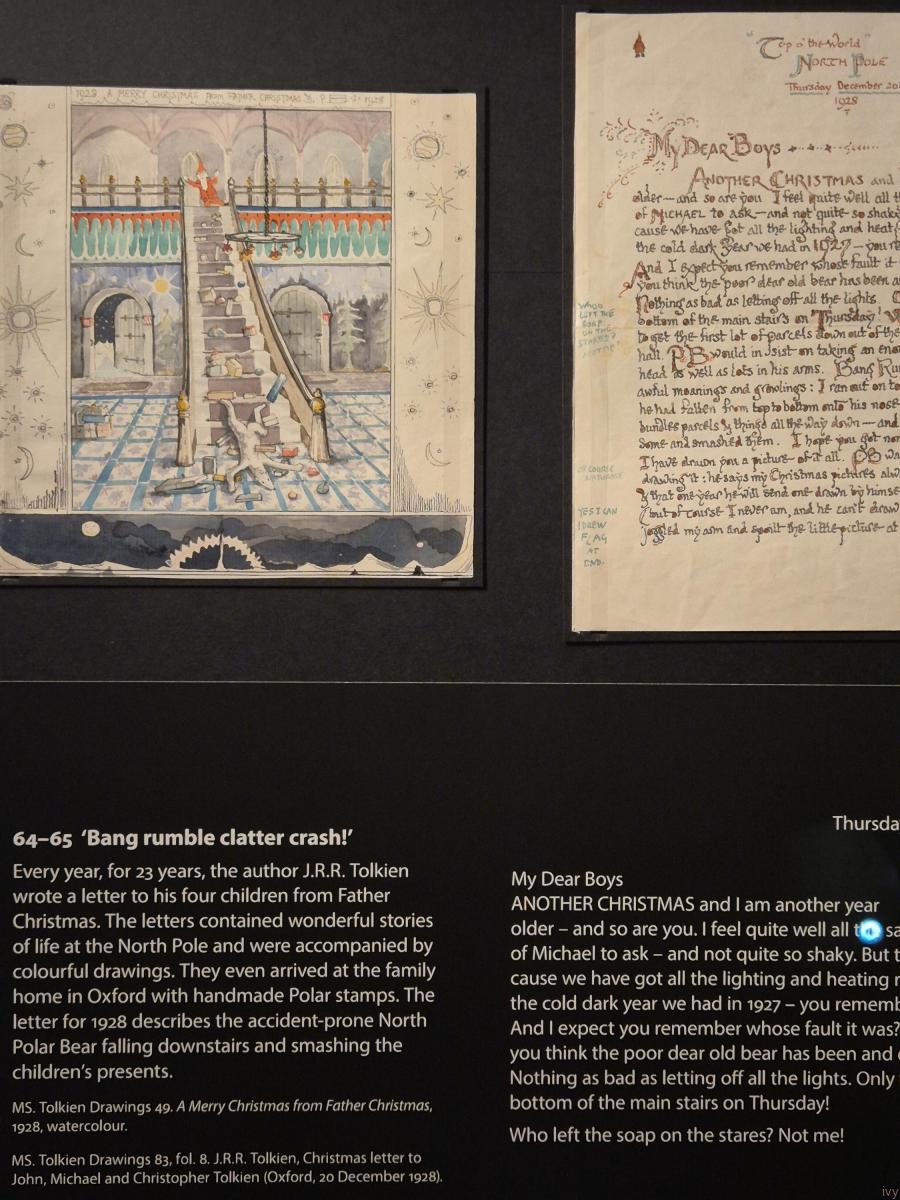 1928 A MERRY CHRISTMAS FROM FATHER CHRISTMAS 1928
"Top o' the World"
NORTH POLE
Thursday December 20
1928
MY DEAR BOYS
ANOTHER CHRISTMAS and
older — and so are you. I feel quite well all
of MICHAEL to ask — and not quite so shaky
cause we have got all the lighting and heat
the cold dark year we had in 1927 — you re
And I expect you remember whose fault it
you think the poor dear old bear has been a
Nothing as bad as letting off all the lights.
bottom of the main stairs on Thursday!
WHO
LEFT THE
SOAP
ON THE
STARES?
NOT ME!
to get the first lot of parcels down out of the
hall. PB would insist on taking an eno
head as well as lots in his arms. Bang Rum
awful moanings and growlings: I ran out on to
he had fallen from top to bottom onto his nose
bundles parcels & things all the way down — and
some and smashed them. I hope you got non
I have drawn you a picture of it all. PB wa
drawing it: he says my Christmas pictures alw
OF COURSE
NATURALY
& that one year he will send one drawn by himse
but of course I never am, and he can't draw
joggled my arm and spoilt the little picture at
YES I CAN
I DREW
FLAG
AT
END.
64–65 ‘Bang rumble clatter crash!’
Every year, for 23 years, the author J.R.R. Tolkien
wrote a letter to his four children from Father
Christmas. The letters contained wonderful stories
of life at the North Pole and were accompanied by
colourful drawings. They even arrived at the family
home in Oxford with handmade Polar stamps. The
letter for 1928 describes the accident-prone North
Polar Bear falling downstairs and smashing the
children’s presents.
MS. Tolkien Drawings 49. A Merry Christmas from Father Christmas,
1928, watercolour.
MS. Tolkien Drawings 83, fol. 8. J.R.R. Tolkien, Christmas letter to
John, Michael and Christopher Tolkien (Oxford, 20 December 1928).
Thursda
My Dear Boys
ANOTHER CHRISTMAS and I am another year
older – and so are you. I feel quite well all t sa
of Michael to ask – and not quite so shaky. But t
cause we have got all the lighting and heating r
the cold dark year we had in 1927 – you rememb
And I expect you remember whose fault it was?
you think the poor dear old bear has been and
Nothing as bad as letting off all the lights. Only
bottom of the main stairs on Thursday!
Who left the soap on the stares? Not me!
ivy